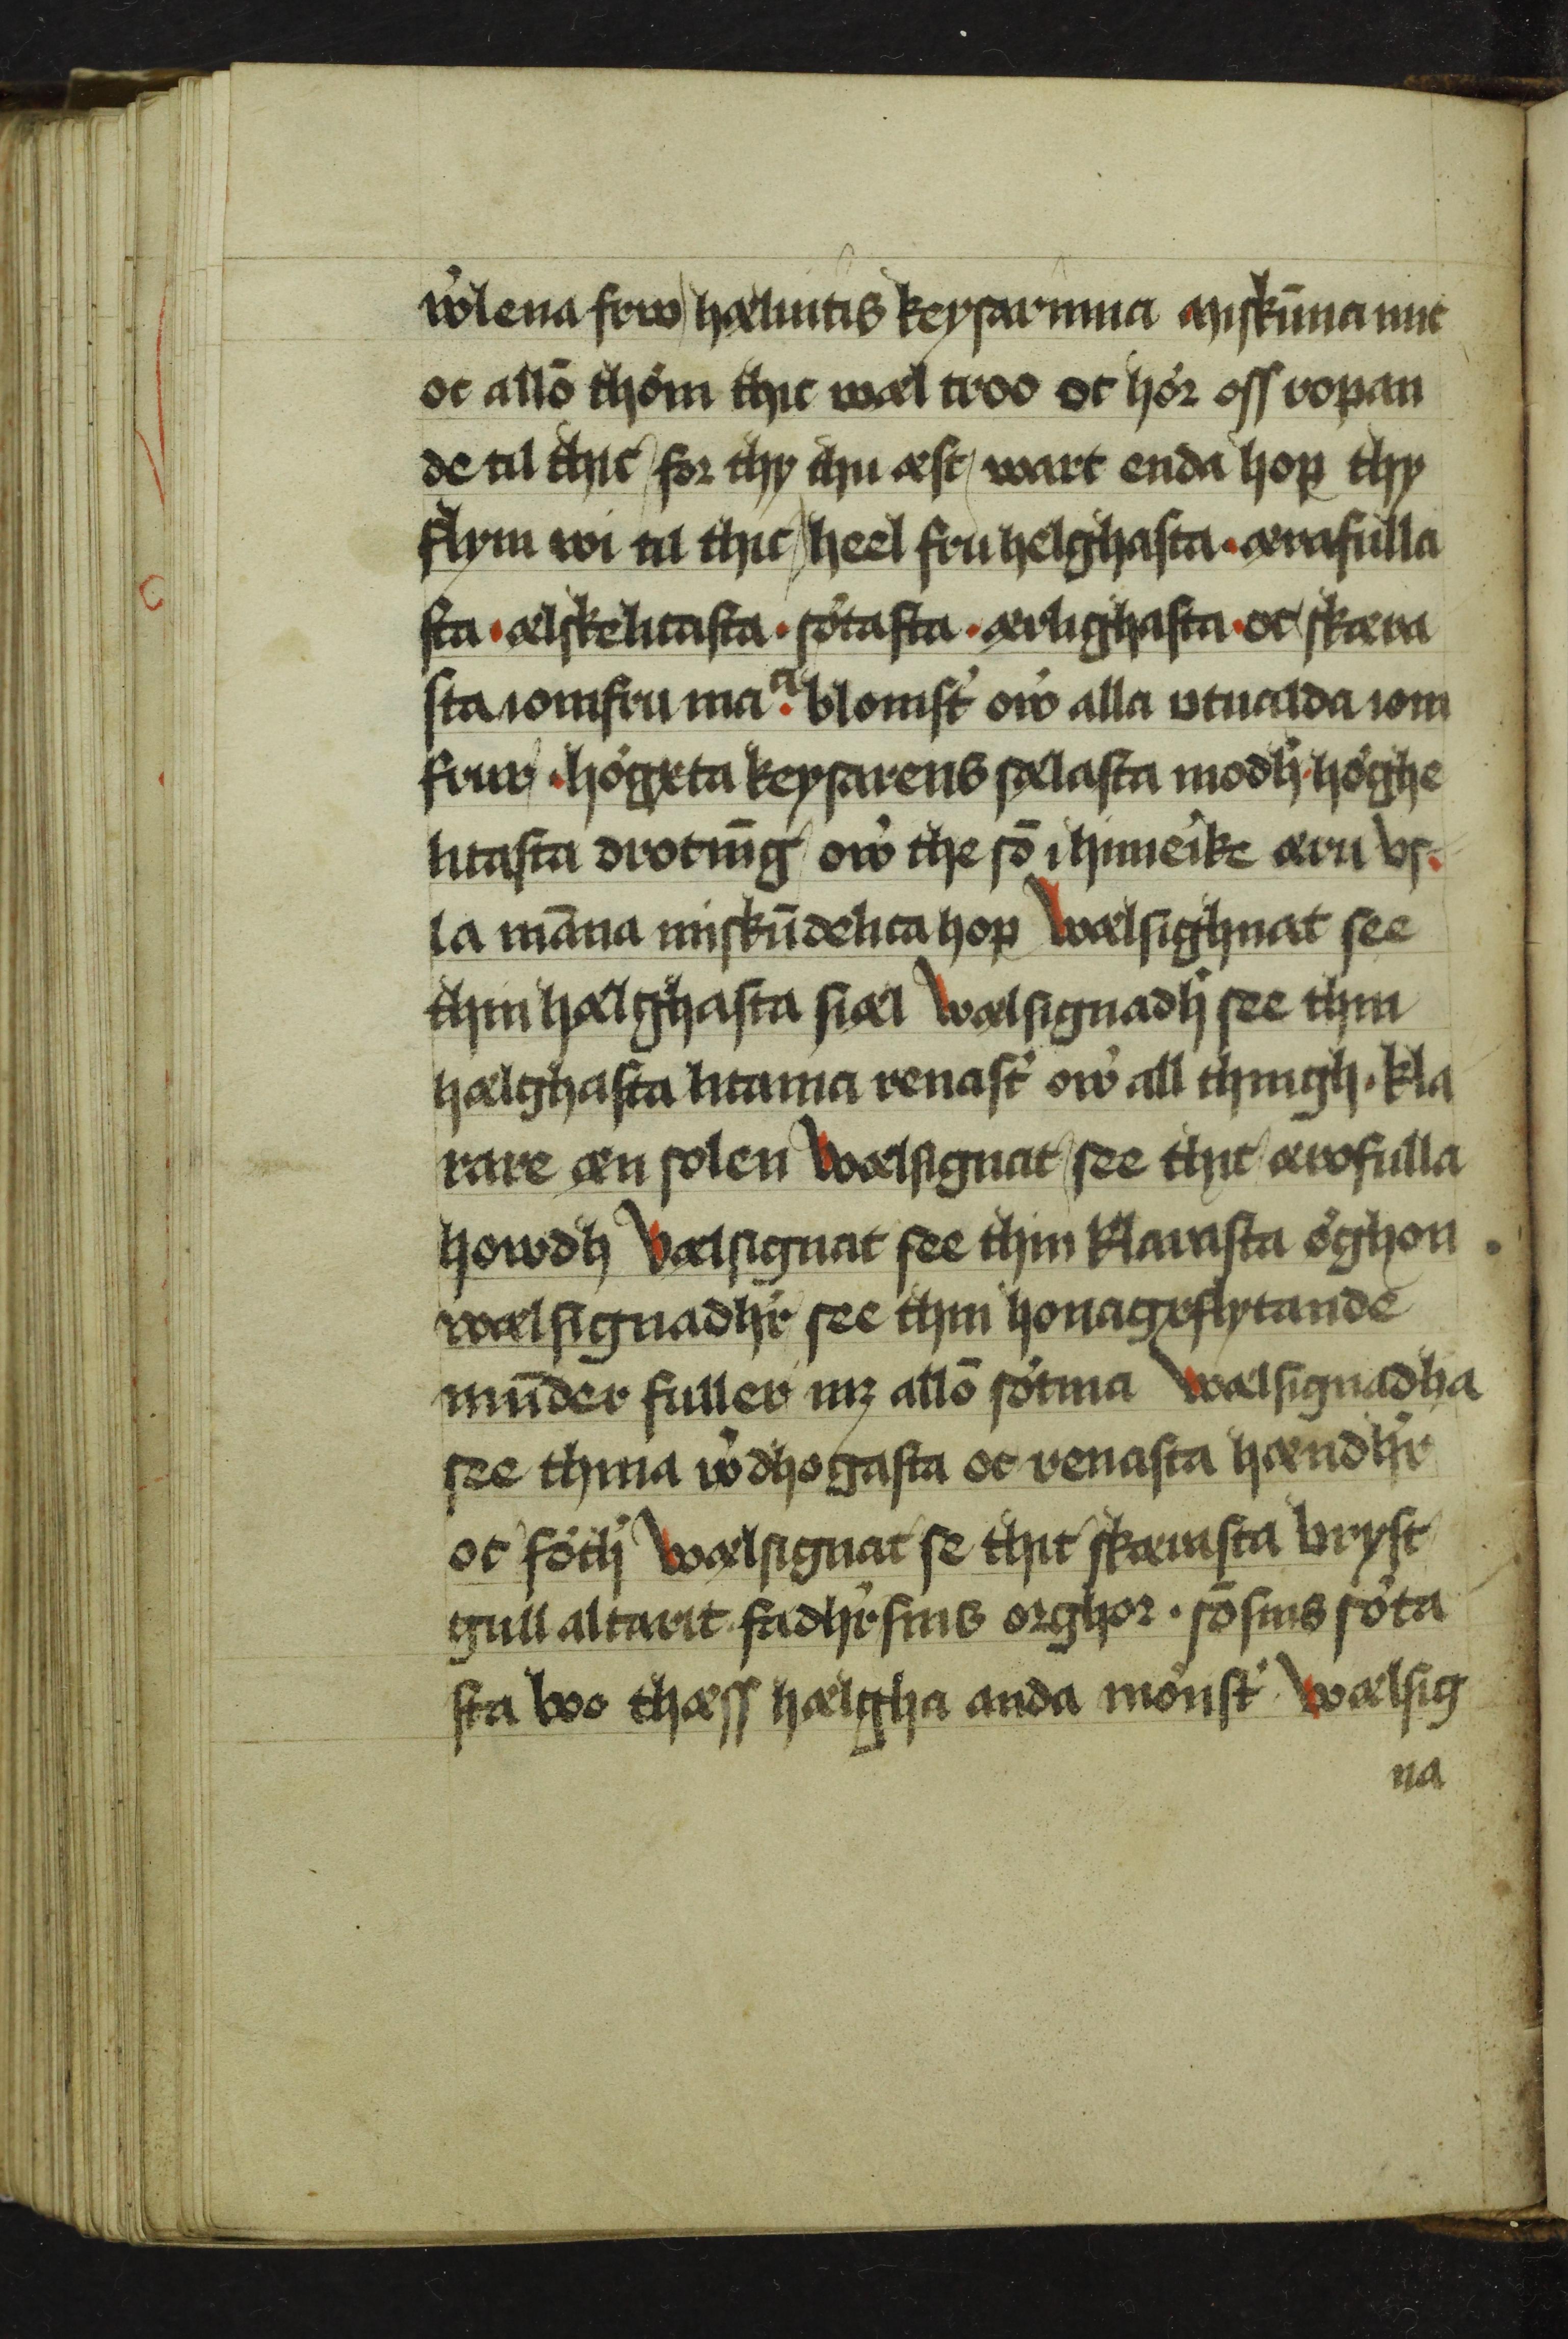 w̓lena frw hælwitis keysarinna miskūna mic
oc allō thöm thic wæl troo oc hör oss ropan
de til thic for thy thu æst wart enda hop thy
flym wi til thic heel fru helghasta · ærafulla
sta · ælskelicasta · sötasta · ærlighasta · oc skæra
sta iomfru maᵃ · blomst̓ ow̓ alla vtualda iom
frur · högxta keysarens sælasta modh̓ · höghe
licasta drotnīg ow̓ the sō i himerike æru vs ·
la māna miskūdelica hop Wælsighnat see
thin hælghasta siæl Wælsignadh̓ see thin
hælghasta licama renast̓ ow̓ all thingh · kla
rare æn solen Wælsignat see thit ærofulla
howdh Wælsignat see thin klarasta öghon
wælsignadh̓r see thin honagxflytande
mūder fuller mꝫ allō sötma Wælsignadha
see thina w̓dhogasta oc renasta hændh̓r
oc föth̓ Wælsignat se thit skærasta bryst
gull altarit fadh̓rsins orghor · sōsins söta
sta bo thæss hælgha anda mönst̓ Wælsig
na